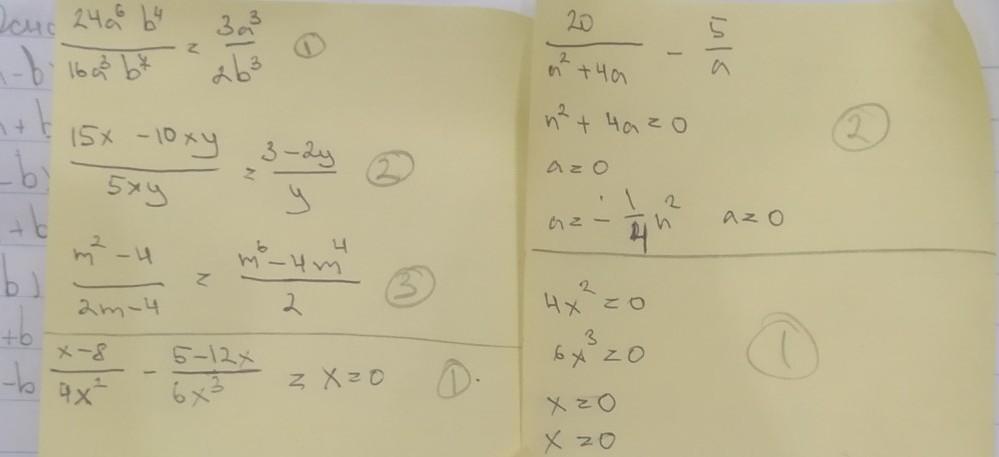 24a⁶ b⁴ / 16a³ b⁷ = 3a³ / 2b³ ①
15x - 10xy / 5xy = 3 - 2y / y ②
m² - 4 / 2m - 4 = m⁶ - 4m⁴ / 2 ③
x - 8 / 4x² - 5 - 12x / 6x³ = x = 0 ①.
20 / n² + 4a - 5 / a
n² + 4a = 0 ②
a = 0
a = - 1/4 n² a = 0
4x² = 0
6x³ = 0 ①
x = 0
x = 0
- b
+ b
- b)
+ b
b)
+b
-b